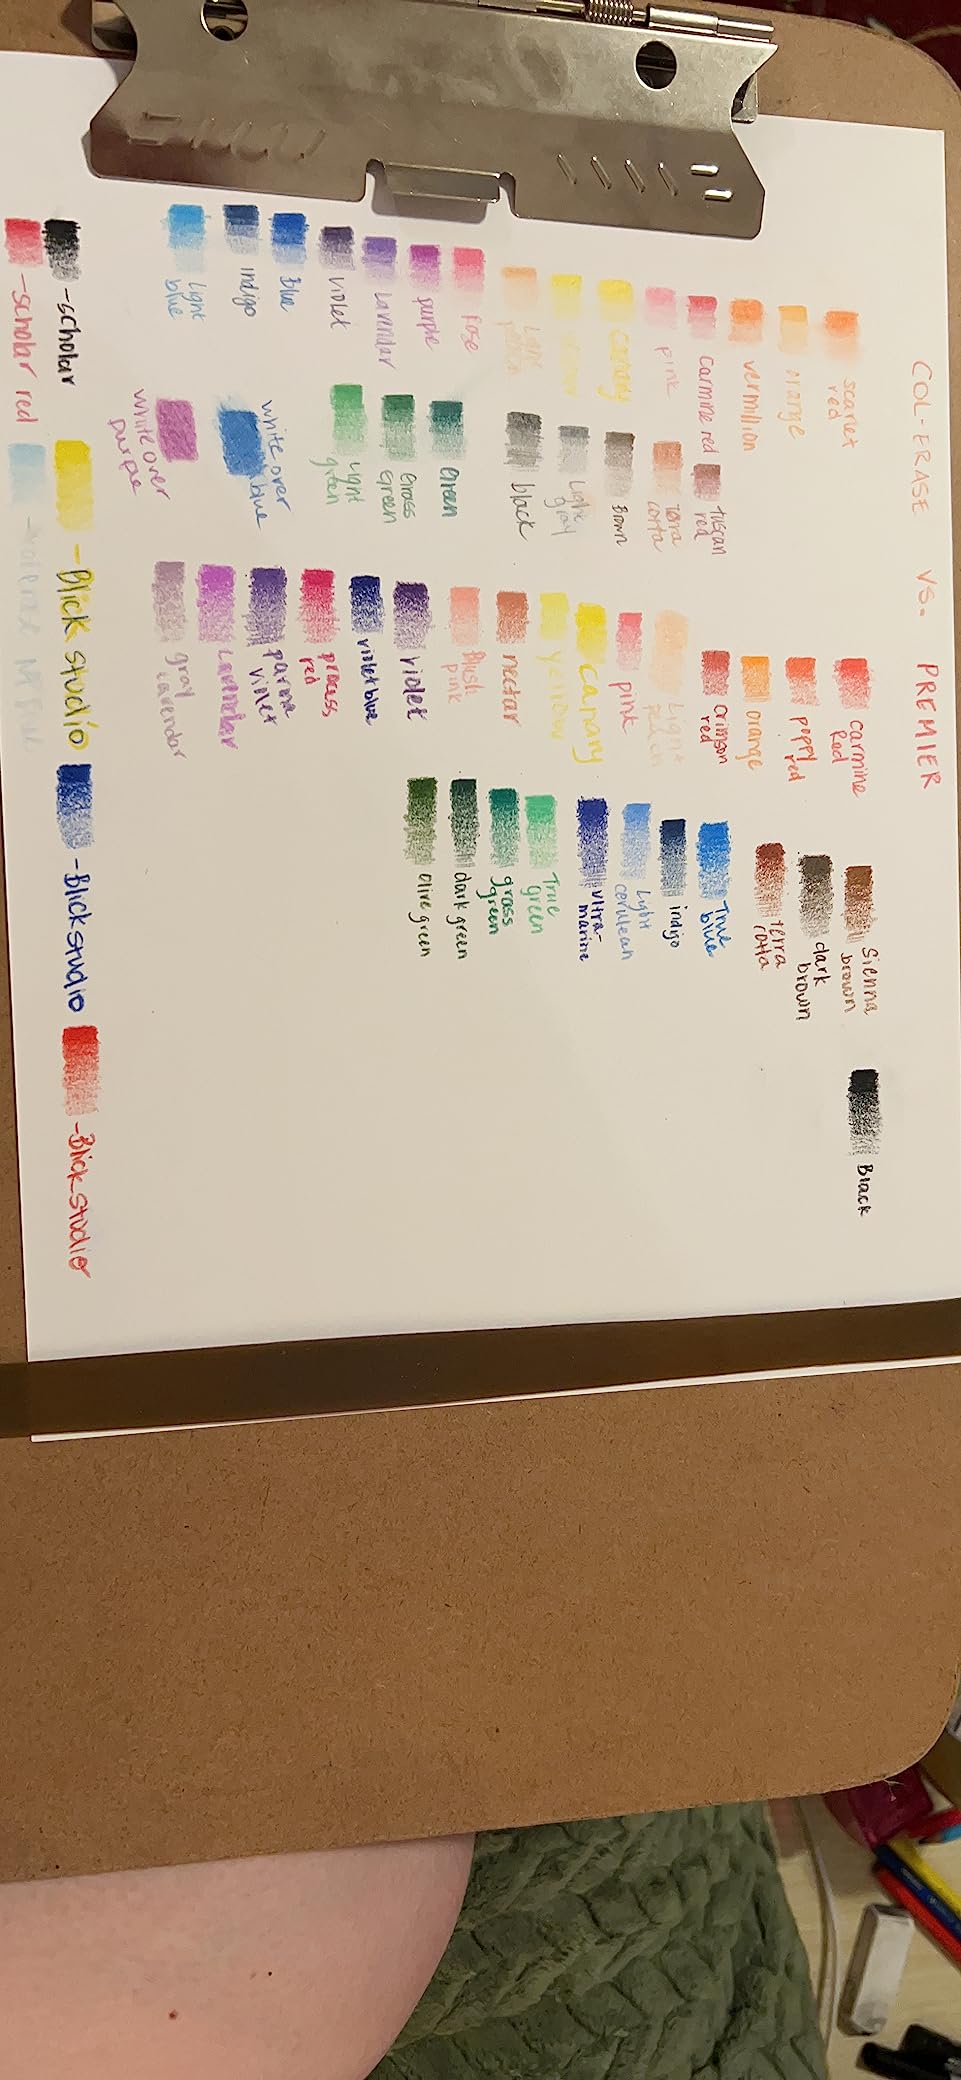 COL-ERASE VS. PREMIER
scarlet
red
orange
vermillion
carmine red
pink
canary
yellow
Light
peach
rose
purple
Lavendar
violet
Blue
indigo
light
blue
tuscan
red
terra
cotta
Brown
Light
gray
black
Green
Grass
Green
Light
green
white over
blue
white over
purple
carmine
Red
poppy
red
orange
crimson
red
Light
peach
pink
canary
yellow
nectar
Blush
pink
violet
violet blue
process
red
parma
violet
Lavendar
gray
Lavendar
Sienna
brown
dark
brown
terra
cotta
True
blue
indigo
Light
cerulean
ultra-
marine
True
green
grass
green
dark green
olive green
Black
-scholar
-Blick studio
-Blick studio
-Blick studio
-scholar red